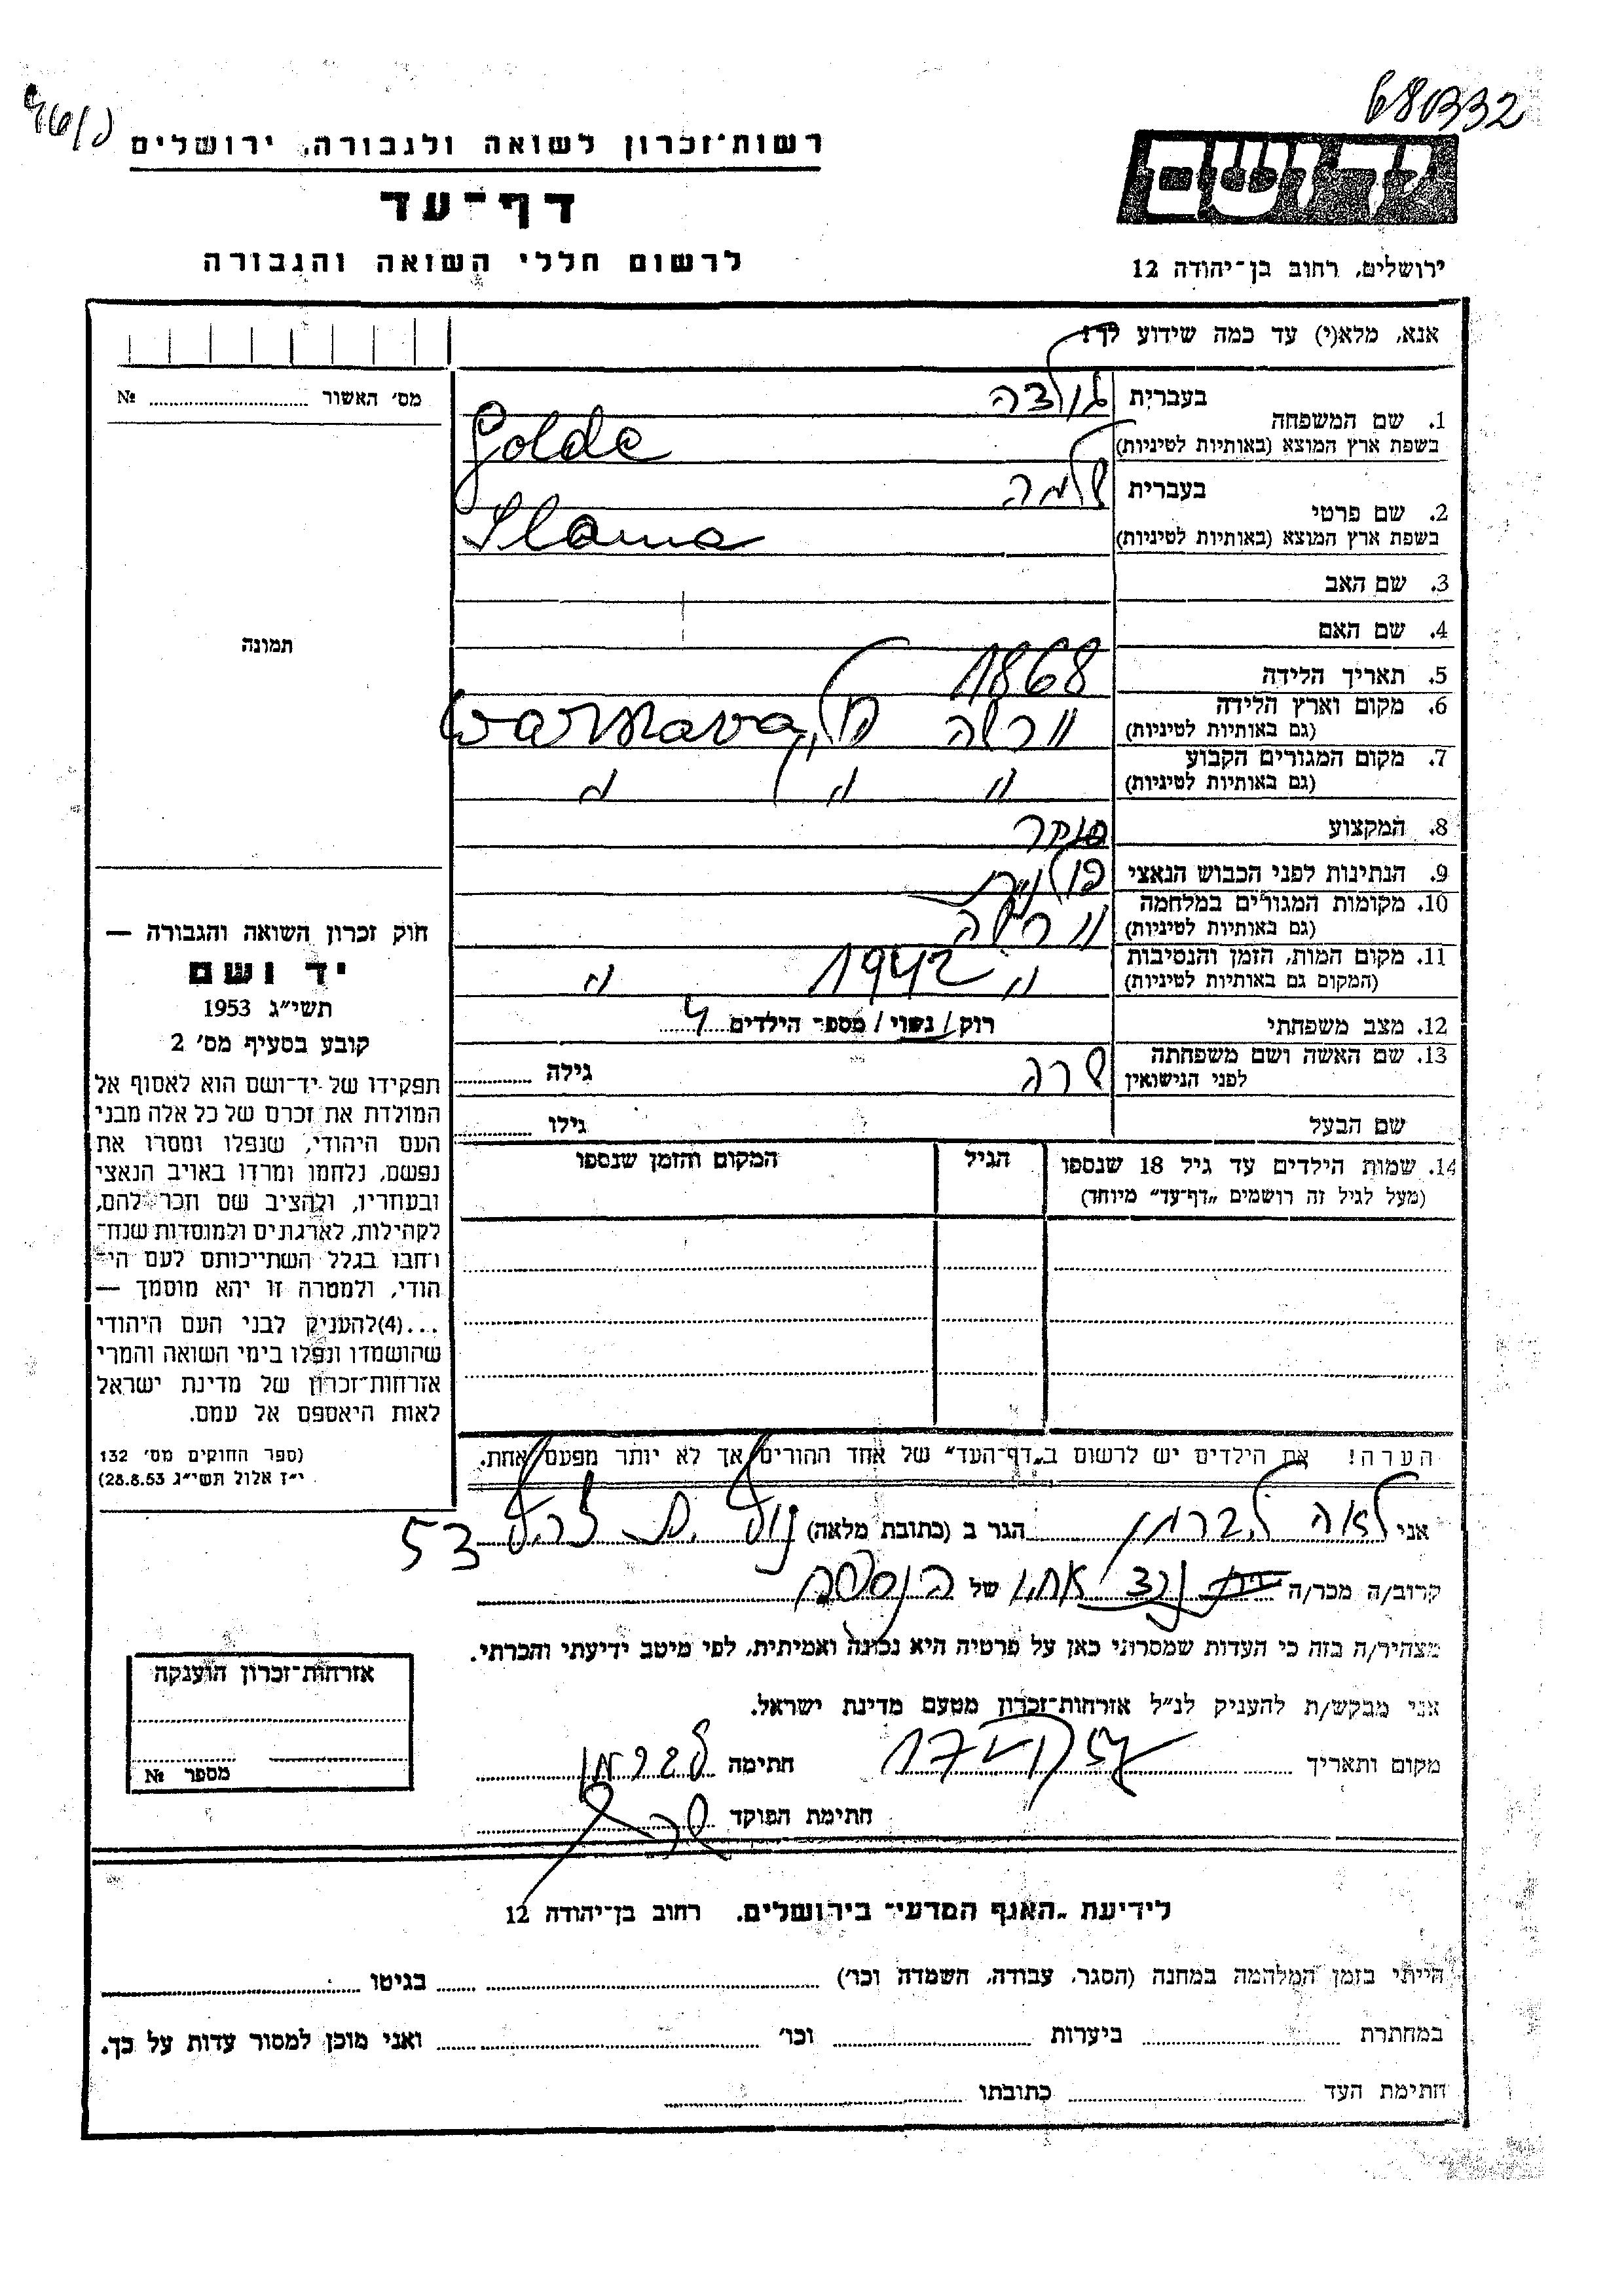 680332
רשות־זכרון לשואה ולגבורה, ירושלים
דף־עד
לרשום חללי השואה והגבורה
יד ושם
ירושלים, רחוב בן־יהודה 12
אנא, מלא(י) עד כמה שידוע לך!
מס׳ האשור № 
1. שם המשפחה בעברית גולדה
בשפת ארץ המוצא (באותיות לטיניות) Golde
2. שם פרטי בעברית שלמה
בשפת ארץ המוצא (באותיות לטיניות) Slama
3. שם האב
4. שם האם
תמונה
5. תאריך הלידה 1868
6. מקום וארץ הלידה (גם באותיות לטיניות) ורשה Warszawa,
7. מקום המגורים הקבוע (גם באותיות לטיניות) " " "
8. המקצוע
9. הנתינות לפני הכבוש הנאצי פולנית
10. מקומות המגורים במלחמה (גם באותיות לטיניות) ורשה
11. מקום המות, הזמן והנסיבות (המקום גם באותיות לטיניות) " 1942 "
12. מצב משפחתי רוק/נשוי/מספר הילדים 4
13. שם האשה ושם משפחתה לפני הנישואין שרה גילה
שם הבעל גילו
14. שמות הילדים עד גיל 18 שנספו הגיל המקום והזמן שנספו
(מעל לגיל זה רושמים „דף־עד״ מיוחד)
חוק זכרון השואה והגבורה —
יד ושם
תשי״ג 1953
קובע בסעיף מס׳ 2
תפקידו של יד־ושם הוא לאסוף אל
המולדת את זכרם של כל אלה מבני
העם היהודי, שנפלו ומסרו את
נפשם, נלחמו ומרדו באויב הנאצי
ובעוזריו, ולהציב שם וזכר להם,
לקהילות, לארגונים ולמוסדות שנח־
רחבו בגלל השתייכותם לעם הי־
הודי, ולמטרה זו יהא מוסמך —
...(4)להעניק לבני העם היהודי
שהושמדו ונפלו בימי השואה והמרי
אזרחות־זכרון של מדינת ישראל
לאות היאספם אל עמם.
(ספר החוקים מס׳ 132
י״ז אלול תשי״ג 28.8.53)
הערה! את הילדים יש לרשום ב„דף־העד״ של אחד ההורים אך לא יותר מפעם אחת.
אני לאה ליברמן הגר ב (כתובת מלאה) 53
קרוב/ה מכר/ה של הנספה
מצהיר/ה בזה כי העדות שמסרתי כאן על פרטיה היא נכונה ואמיתית, לפי מיטב ידיעתי והכרתי.
אני מבקש/ת להעניק לנ״ל אזרחות־זכרון מטעם מדינת ישראל.
מקום ותאריך חתימה ליברמן
חתימת הפוקד
אזרחות־זכרון הוענקה
מספר №
לידיעת „האגף המדעי״ בירושלים, רחוב בן־יהודה 12
הייתי בזמן המלחמה במחנה (הסגר, עבודה, השמדה וכו׳) בגיטו
במחתרת ביערות וכו׳ ואני מוכן למסור עדות על כך.
חתימת העד כתובתו